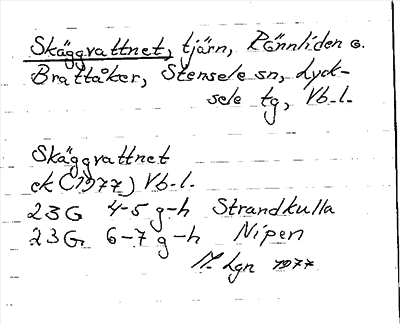 Skäggvattnet, tjärn, Rönnliden o.
Brattåker, Stensele sn, Lyck-
sele tg, Vb-l.
Skäggvattnet
ek (1977) Vb-l.
23G 4-5 g-h Strandkulla
23G 6-7 g-h Nipen
Lgn 1977